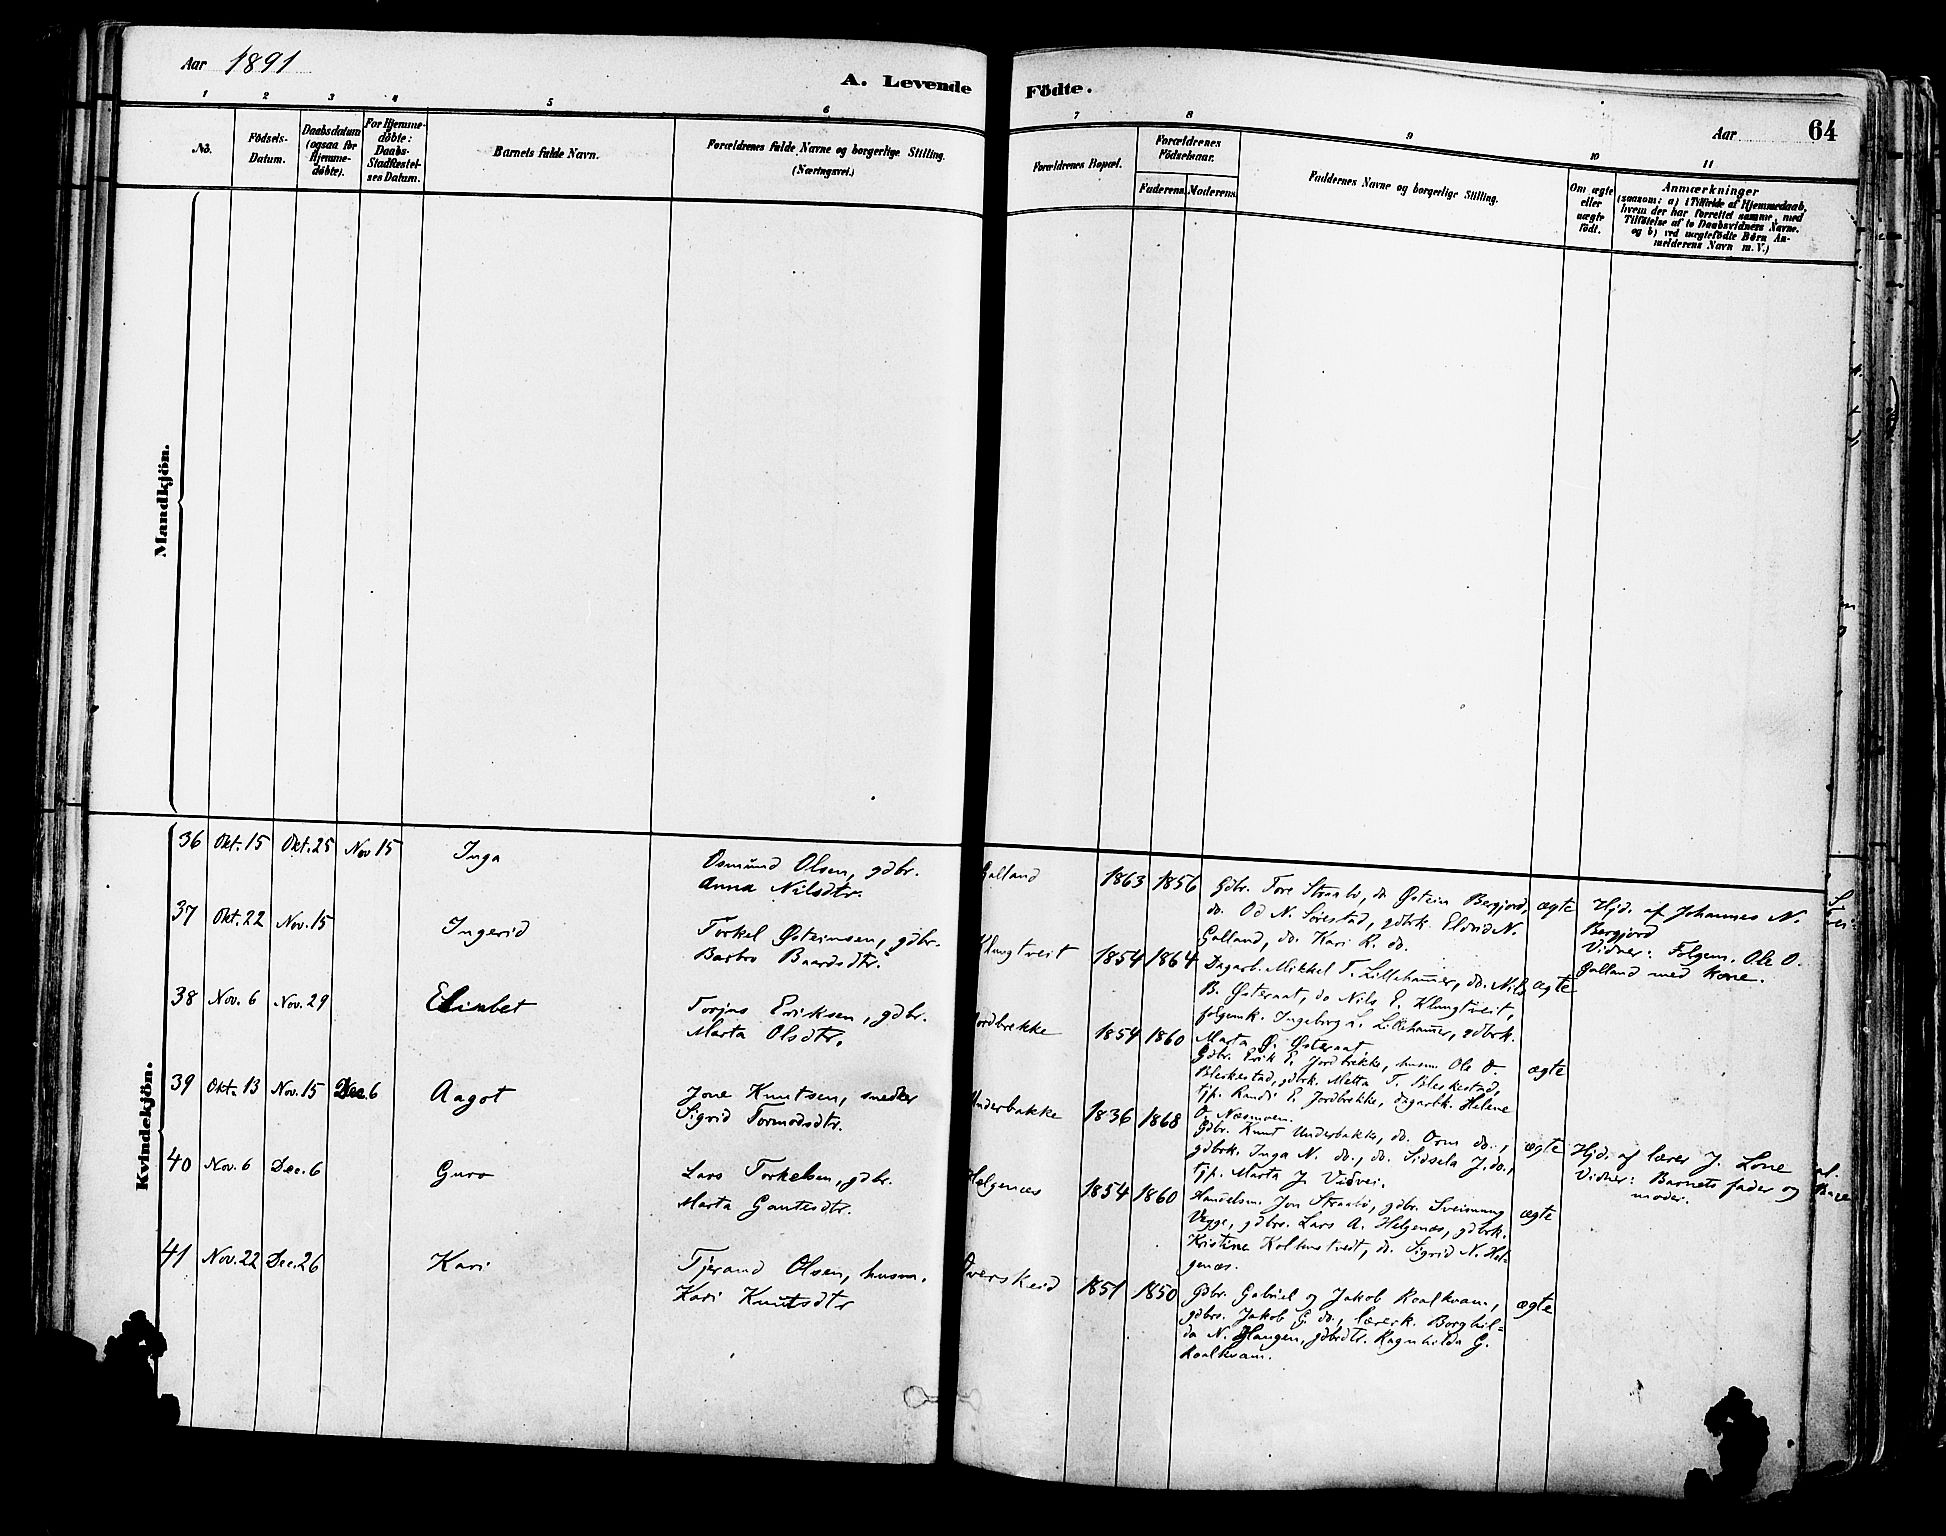 Aar 1891
A. Levende Födte.
Aar 64
1 2 3 4 5 6 7 8 9 10 11
No.
Födsels-Datum.
Daabsdatum (ogsaa for Hjemme-döbte).
For Hjemme-döbte: Daabs-Stadfæstel-ses Datum.
Barnets fulde Navn.
Forældrenes fulde Navne og borgerlige Stilling. (Næringsvei.)
Forældrenes Bopæl.
Forældrenes Födselsaar.
Faderens. Moderens.
Faddernes Navne og borgerlige Stilling.
Om ægte eller uægte födt.
Anmærkninger
(saasom: a) i Tilfælde af Hjemmedaab,
hvem der har forrettet samme, med
Tilföielse af to Daabsvidners Navne.
og b) ved uægtefödte Börn An-
melderens Navn m. V.)
Mandkjön.
Kvindekjön.
36 Okt. 15 Okt. 25 Nov 15 Inga
Osmund Olsen, gdbr.
Anna Nilsdtr.
Galland 1863 1856
Gdbr. Tore Straabø, do Østein Bergjord,
do. Od N. Sørestad, gdbrk. Eldrid N.
Galland, do. Kari R. do.
ægte
Hjd. af Johannes N.
Bergjord
Vidner: Folgem. Ole O.
Galland med kone.
37 Okt. 22 Nov. 15 Ingerid
Torkel Østeinsen, gdbr.
Barbro Baardsdtr.
Klungtveit 1854 1864
Dagarb. Mikkel T. Lillehamer, do. Nils
B. Østeraat, do Nils E. Klungtveit,
folgemk. Ingeborg L. Lillehamer, gdbrk.
Marta Ø. Østeraat
ægte
38 Nov. 6 Nov. 29 Elisabet
Torjus Eriksen, gdbr.
Marta Olsdtr.
Jordbrekke 1854 1860
Gdbr. Erik E. Jordbrekke, husm. Ole O.
Bleskestad, gdbrk. Metta T. Bleskestad,
tjp. Randi E. Jordbrekke, dagarbk. Helene
O. Næsmoen.
ægte
39 Okt. 13 Nov. 15 Dec. 6 Aagot
Jone Knutsen, snedker
Sigrid Tormodsdtr.
Underbakke 1836 1868
Gdbr. Knut Underbakke, do. Orm do.,
gdbrk. Inga N. do., do. Sidsela J. do.,
tjp. Marta J. Vidvei.
ægte
Hjd. af lærer J. Lone
Vidner: Barnets fader og
moder.
40 Nov. 6 Dec. 6 Guro
Lars Torkelsen, gdbr.
Marta Gautesdtr.
Helgenæs 1854 1860
Handelsm. Jon Straabø, gdbr. Sveinung
Vegge, gdbrs. Lars A. Helgenæs, gdbrk.
Kristine Kolbenstvedt, do. Sigrid N. Hel-
genæs.
ægte
41 Nov. 22 Dec. 26 Kari
Tjerand Olsen, husm.
Kari Knutsdtr
Overskeid 1851 1850
Gdbr. Gabriel og Jakob Roalkvam,
gdbrs. Jakob G. do., lærerk. Borghil-
da N. Haugen, gdbrdtr. Ragnhilda G.
Roalkvam.
ægte